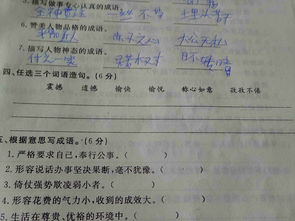 5.描写做事专心认真的成语。
全神贯注 一丝不苟
6.赞美人物品格的成语。
大公无私
7.描写人物神态的成语。
四、任选三个词语造句。(6分)
震撼 遗憾 愉快 愉悦 称心如意 孜孜不倦
五、根据意思写成语。(6分)
1.严格要求自己,奉行公事。(
2.形容说话办事坚决果断,毫不犹豫。(
3.倚仗强势欺凌弱小者。( )
4.形容花费的气力小,收到的成效大。(
5.生活在尊贵、优裕的环境中。(